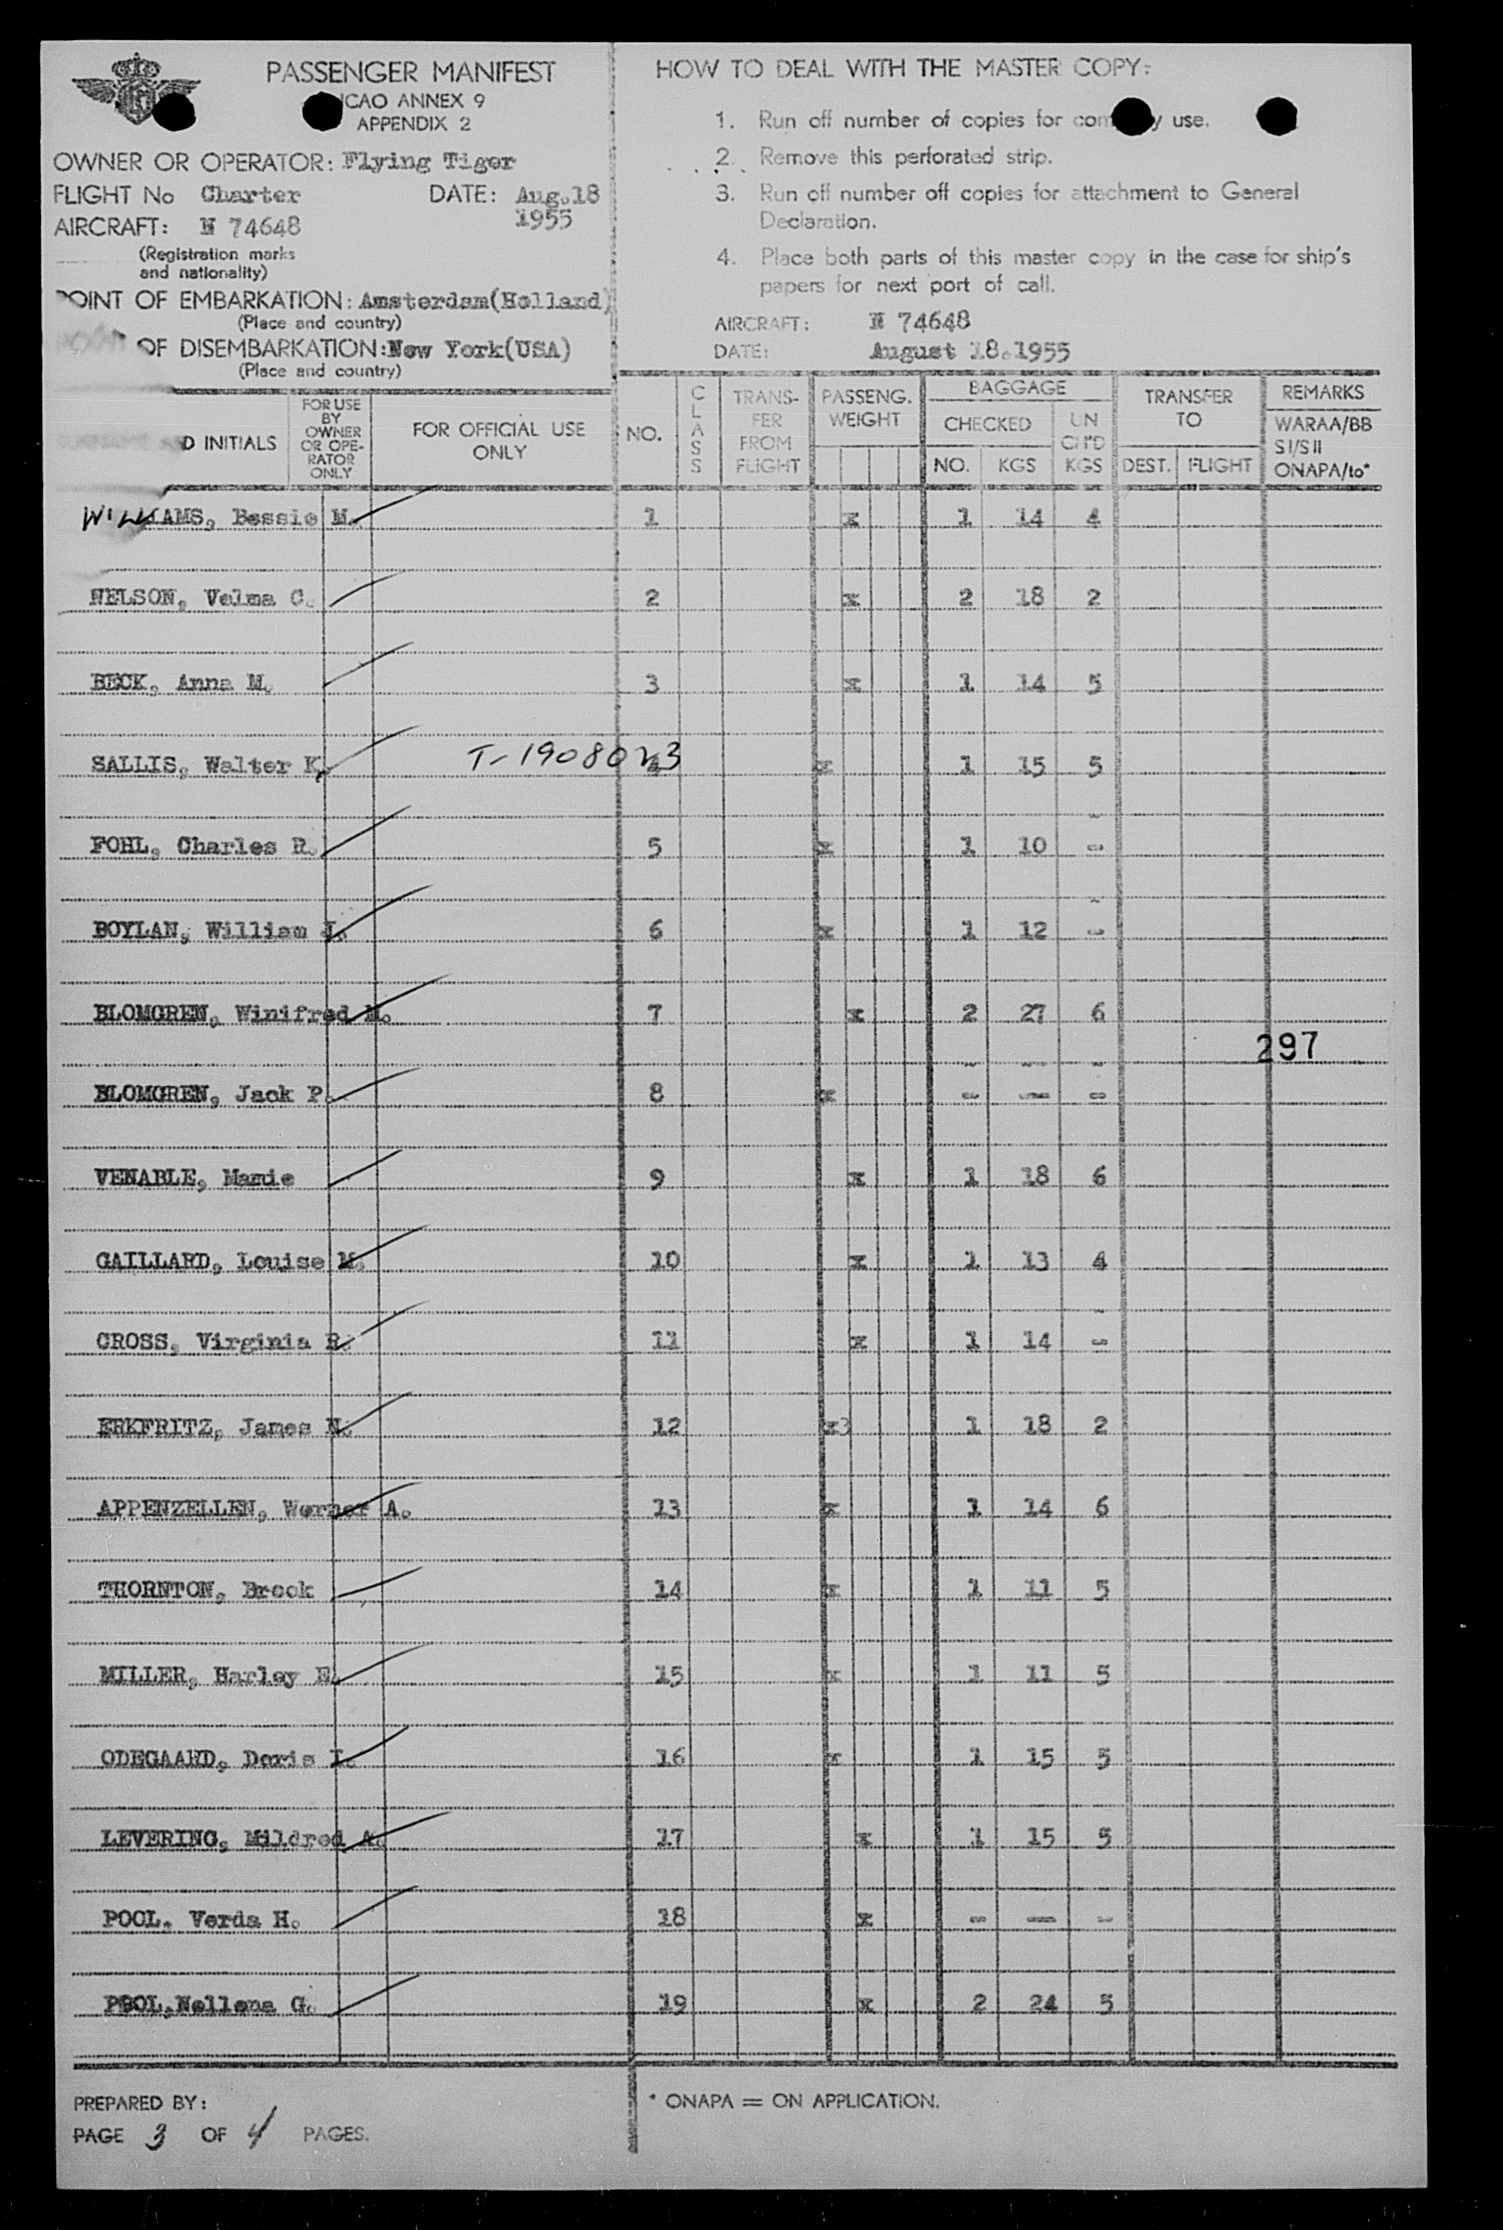 PASSENGER MANIFEST
ICAO ANNEX 9
APPENDIX 2
OWNER OR OPERATOR: Flying Tiger
FLIGHT No Charter DATE: Aug.18
1955
AIRCRAFT: N 74648
(Registration marks
and nationality)
POINT OF EMBARKATION: Amsterdam(Holland)
(Place and country)
OF DISEMBARKATION: New York(USA)
(Place and country)
HOW TO DEAL WITH THE MASTER COPY:
1. Run off number of copies for company use.
2. Remove this perforated strip.
3. Run off number off copies for attachment to General
Declaration.
4. Place both parts of this master copy in the case for ship's
papers for next port of call.
AIRCRAFT: N 74648
DATE: August 18.1955
D INITIALS
FOR USE
BY
OWNER
OR OPE-
RATOR
ONLY
FOR OFFICIAL USE
ONLY
NO.
CLASS
TRANS-
FER
FROM
FLIGHT
PASSENG.
WEIGHT
BAGGAGE
CHECKED
NO. KGS
UN
CH'D
KGS
TRANSFER
TO
DEST. FLIGHT
REMARKS
WARAA/BB
SI/SII
ONAPA/to*
WILLIAMS, Bessie M. 1 x 1 14 4
NELSON, Velma C. 2 x 2 18 2
BECK, Anna M. 3 x 1 14 5
SALLIS, Walter K. T-1908023 4 x 1 15 5
FOHL, Charles R. 5 x 1 10 -
BOYLAN, William J. 6 x 1 12 -
BLOMGREN, Winifred M. 7 x 2 27 6
297
BLOMGREN, Jack P. 8 x - - -
VENABLE, Mamie 9 x 1 18 6
GAILLARD, Louise M. 10 x 1 13 4
CROSS, Virginia R. 11 x 1 14 -
ERKFRITZ, James N. 12 x3 1 18 2
APPENZELLEN, Werner A. 13 x 1 14 6
THORNTON, Brock 14 x 1 11 5
MILLER, Harley E. 15 x 1 11 5
ODEGAARD, Doris I. 16 x 1 15 5
LEVERING, Mildred A. 17 x 1 15 5
POOL, Verda H. 18 x - - -
POOL,Nellena G. 19 x 2 24 5
PREPARED BY:
PAGE 3 OF 4 PAGES.
* ONAPA = ON APPLICATION.